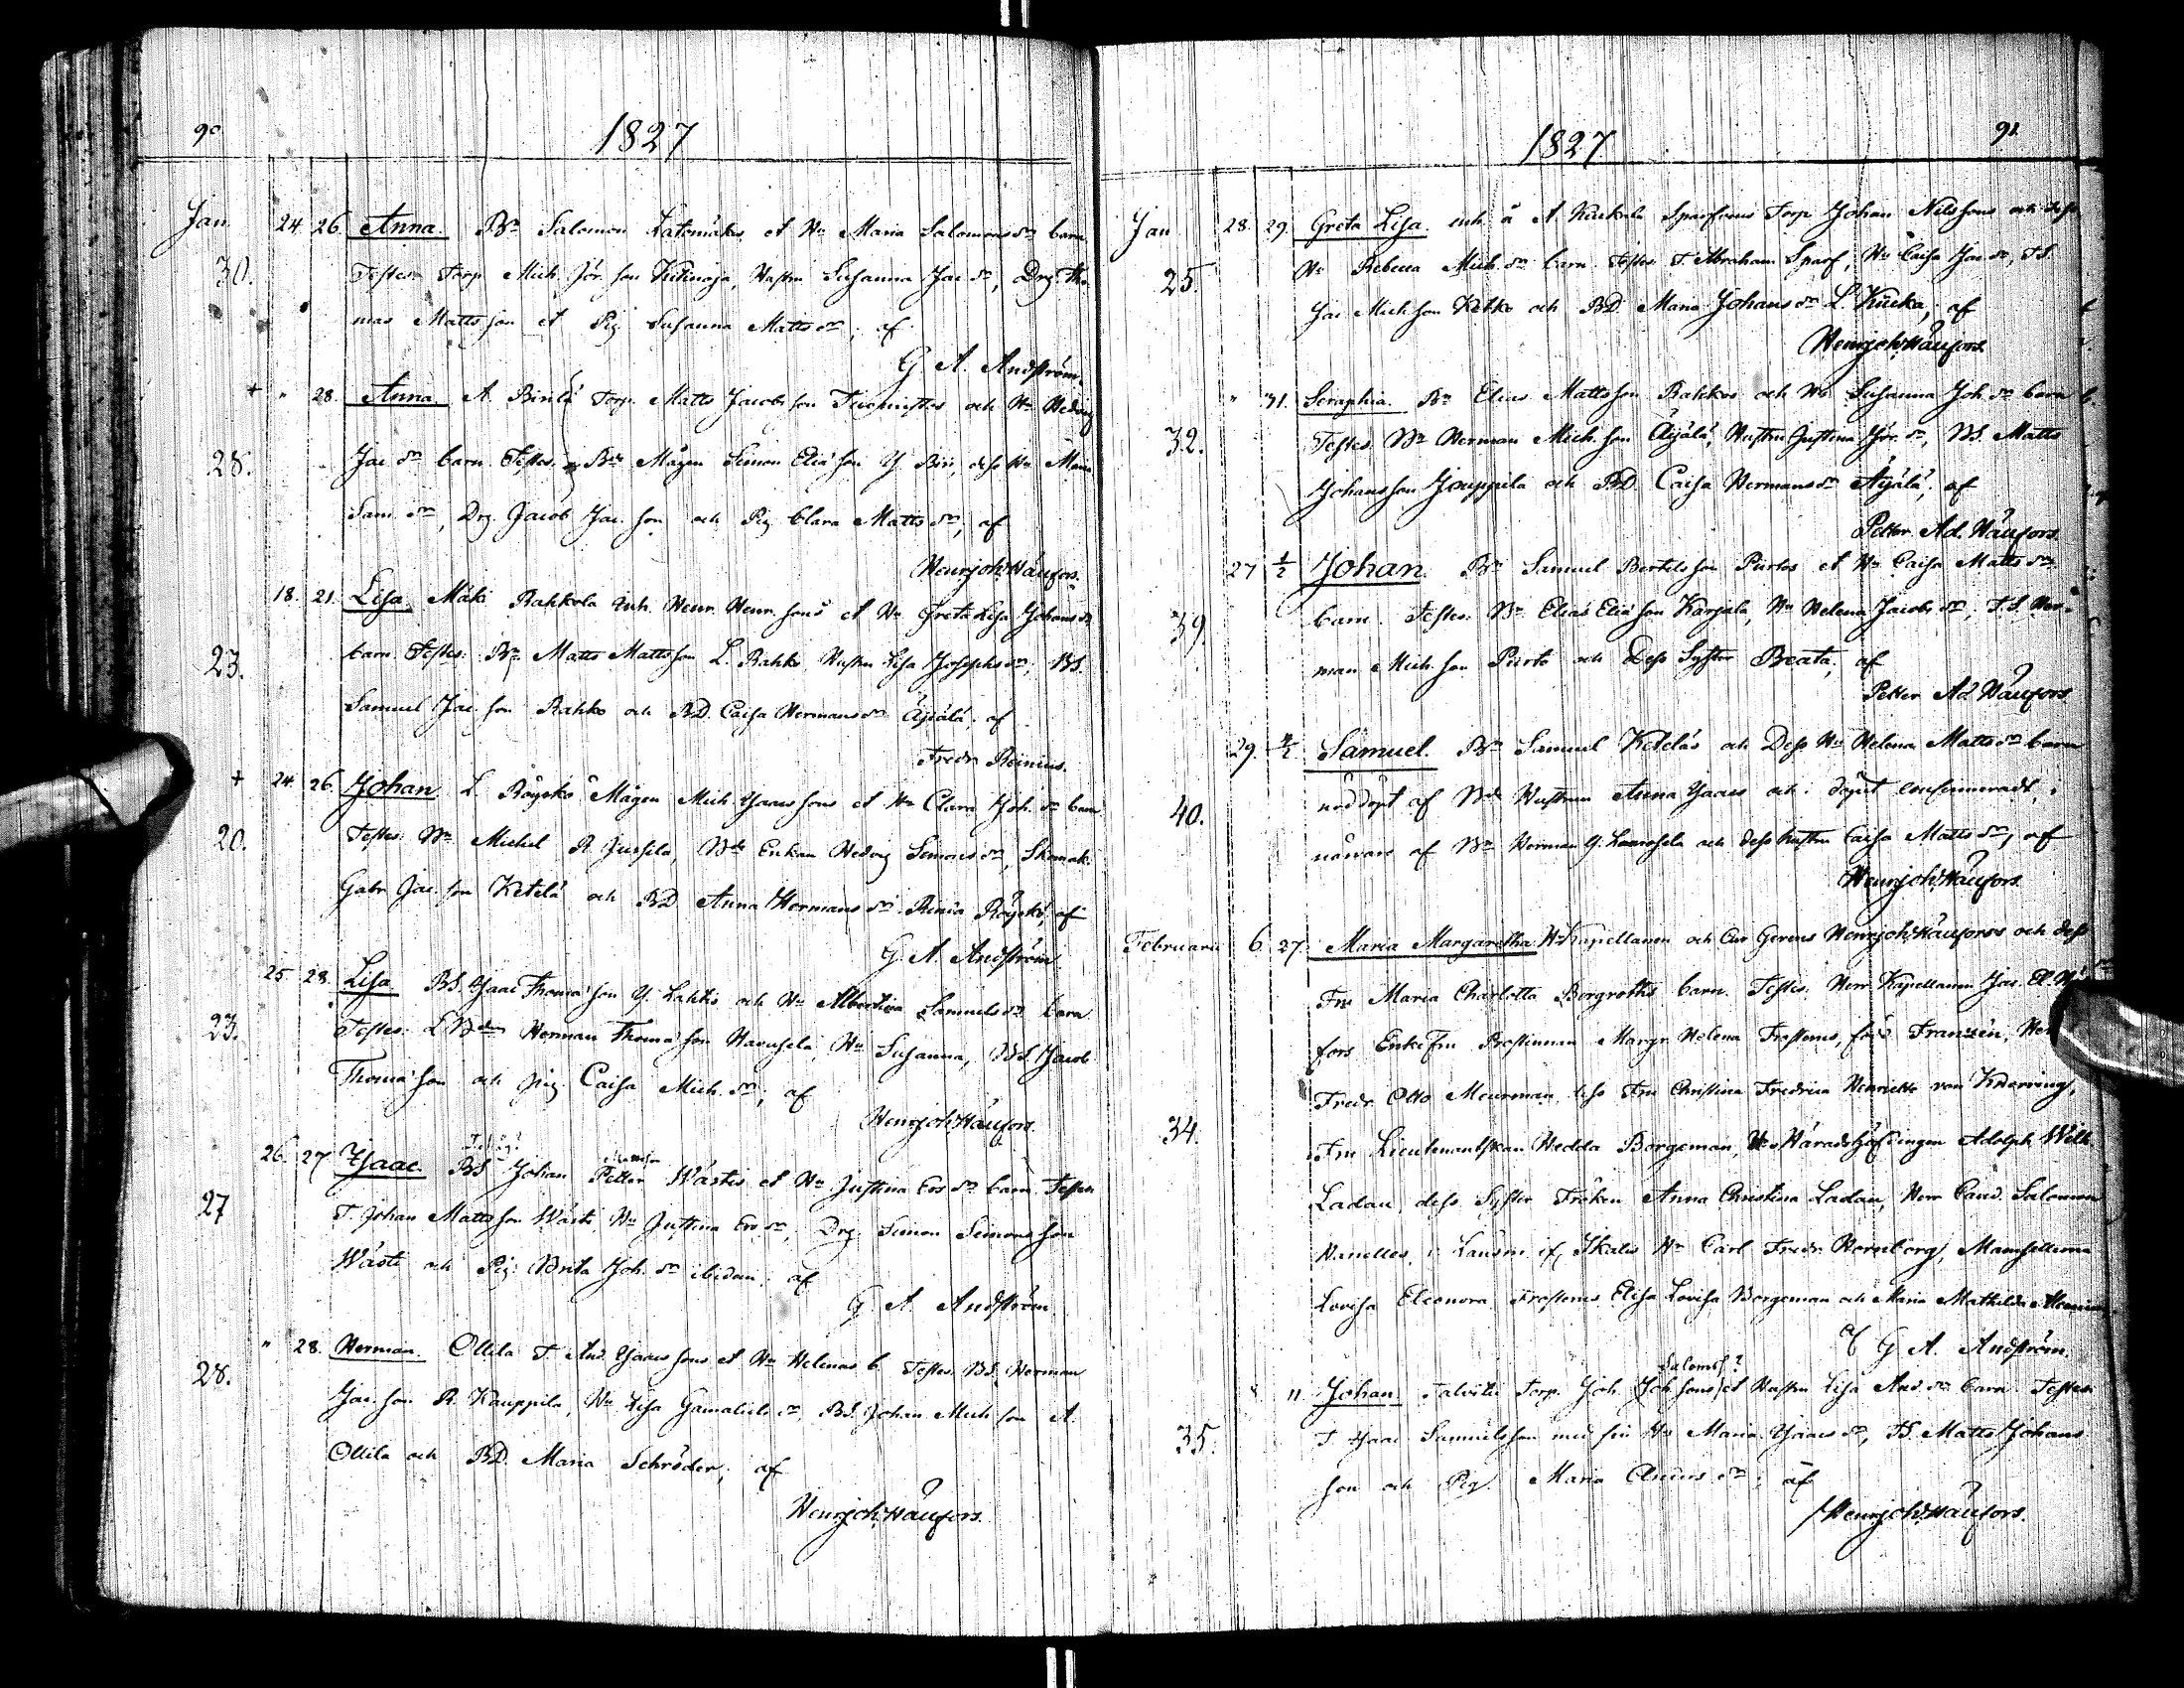 90 1827
Jan. 24. 26. Anna. Bn Salomon Latomäkis et Hu Maria Salomonsdr barn
30. Testes Torp Mich. Jör.son Kutinoja, Hustru Susanna Jac.dr, Drg. Tho-
mas Mattsson et Pig. Susanna Mattsdr; af
G. A. Andström.
+ " 28. Anna. A. Torp. Matts Jacobsson och Hu Hedvig
28. Jac.dr barn. Testes Bde Mågen Simon Eliæson Y. dess Hu Maria
Sam.dr, Drg. Jacob Jac.son och Pig. Clara Mattsdr; af
Henr. Joh. Häufors.
18. 21. Lisa. Mäki Rahkola inh. Henr. Henr.sons et Hu Greta Lisa Johansdr
23. barn. Testes: Bn Matts Mattsson L. Rahko, Hustru Lisa Josephsdr; BS.
Samuel Jac.son Rahko och BD. Caisa Hermansdr Äijälä; af
Fredr. Reinius.
+ 24. 26. Johan L. Röyskö Mågen Mich. Isaacsons et Hu Clara Joh.dr barn
20. Testes: Bn Michel R. Jussila, Bde Enkan Hedvig Simonsdr, Skomak.
Gabr. Jac.son Ketelä och BD. Anna Hermansdr Röyskö; af
G. A. Andström
25. 28. Lisa. BS. Isaac Thomæson Y. Lahtis och Hu Albertina Samuelsdr barn
23. Testes: L. Bden Herman Thomæson Havusela, Hu Susanna, BS. Jacob
Thomæson och Pig. Caisa Mich.dr; af
Henr. Joh. Häufors.
26. 27 Isaac. BS Johan Petter Wästis et Hu Justina Ersdr barn. Testes
27 T. Johan Mattsson Wästi, Hu Justina Ersdr, Drg. Simon Simonsson
Wästi och Pig. Brita Joh.dr ibidem; af
G. A. Andström
" 28. Herman. Ollila T. And. Isaacsons et Hu Helenas b. Testes. BS. Herman
28. Jac.son R. Kauppila, Hu Lisa Gamalielsdr, BS. Johan Mich.son A.
Ollila och BD. Maria Schröder; af
Henr. Joh. Häufors.
1827 91
Jan 28. 29. Greta Lisa. inh. å A. Kuckola Sparfvens Torp Johan Nilssons och dess
25. Hu Rebecca Mich.dr barn. Testes T. Abraham Sparf, Hu Caisa Jac.dr, TS.
Jac. Mich.son Ketko och BD. Maria Johansdr L. Kucka; af
Henr. Joh. Häufors.
" 31. Seraphia. Bn Elias Mattsson Rahkos och Hu Susanna Joh.dr barn
32. Testes. Bn Herman Mich.son Äijälä, Hustru Justina Jör.dr, BS. Matts
Johansson Jouppila och BD. Caisa Hermansdr Äijälä; af
Petter Ad. Häufors.
27 1/2 Johan. Bn Samuel Bertilsson Pirtos et Hu Caisa Mattsdr
39. barn. Testes: Bn Elias Eliæson Karjala, Hu Helena Jacobsdr, T.S. Her-
man Mich.son Pirto och Dess Syster Beata; af
Petter Ad. Häufors.
29. 4/2 Samuel. Bn Samuel Keteläs och Dess Hu Helena Mattsdr barn
40. nöddöpt af Bde Hustrun Anna Isaacs och i döpet confirmeradt, i
närvaro af Bn Herman Y. och dess hustru Caisa Mattsdr; af
Henr. Joh. Häufors.
Februarii 6 27. Maria Margaretha Hr Kapellanen och Cur Gerens Henr. Joh. Häuforss och dess
Fru Maria Charlotta Bergroths barn. Testes. Herr Kapellanen Jac.
fors Enke Fru Prostinnan Margr. Helena Frosterus, född Franzén,
34. Fredr. Otto Meurman, dess Fru Christina Fredrica Henriette von Knorring,
Fru Lieutenantskan Hedda Borgeman, Hr Häradshöfdingen Adolph Wilh.
Ladau, dess Syster Fröken Anna Christina Ladau, Herr Cand. Salomon
Hanelles, Hr Carl Fredr. Hornborg, Mamsellerna
Lovisa Eleonora Frosterus, Elisa Lovisa Borgeman och Maria Mathilda
af G. A. Andström.
Salomss?
8 11. Johan. Talvitie Torp. Joh. Joh.sons et Hustru Lisa And.dr barn. Testes
35. T Isaac Samuelsson med sin Hu Maria Isaacsdr, TS. Matts Johans
son och Pig. Maria Andersdr; af
Henr. Joh. Häufors.